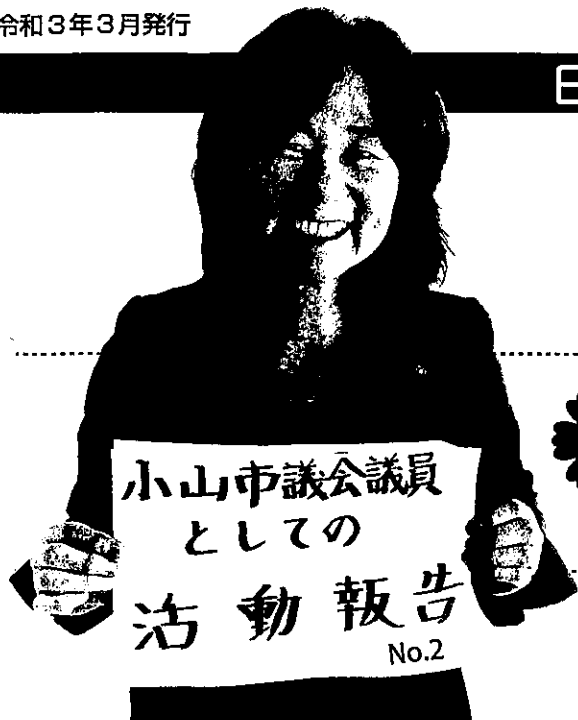 令和3年3月発行
小山市議会議員
としての
活動報告
No.2